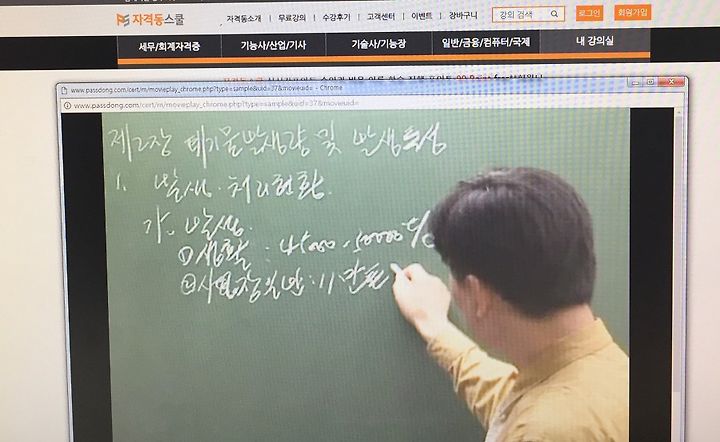 자격동스쿨
자격동소개 | 무료강의 | 수강후기 | 고객센터 | 이벤트 | 장바구니 강의 검색 로그인 회원가입
세무/회계자격증 기능사/산업/기사 기술사/기능장 일반/금융/컴퓨터/국제 내 강의실
www.passdong.com/cert/m/movieplay_chrome.php?type=sample&uid=37&movieuid= - Chrome
www.passdong.com/cert/m/movieplay_chrome.php?type=sample&uid=37&movieuid=
제2장 폐기물발생량 및 발생특성
1. 발생·처리현황
가. 발생
①생활 : 45000-50000t/
②사업장일반 : 11만톤